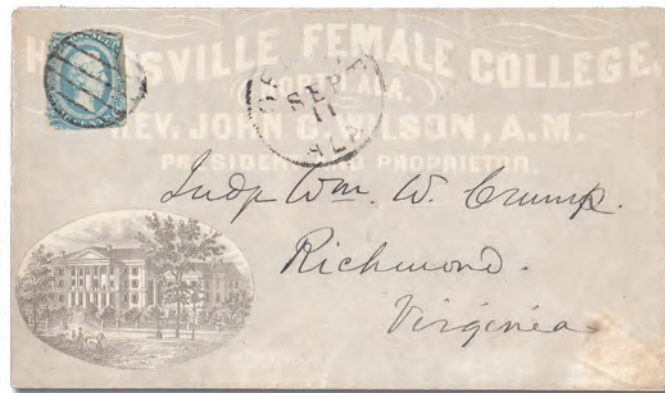 HUNTSVILLE FEMALE COLLEGE,
NORTH ALA.
REV. JOHN C. WILSON, A.M.
PRESIDENT AND PROPRIETOR.
SEP
11
ALA
Judge Wm. W. Crump.
Richmond.
Virginia